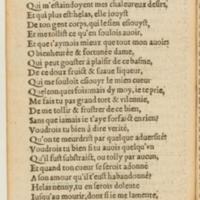 Qui m'estaindoyent mes chaleureux desirs,
Et qui plus est helas, elle iouyst
De ton gent corps, qui le sien esiouyst,
Et me tollist ce qu'en soulois auoir,
Et que t'aymois mieux que tout mon auoir
O bienheurée & fortunée dame,
Qui peut gouster à plaisir de ce basme,
De ce doux fruict & suaue liqueur,
Qui me souloit esiouyr le mien cueur
Quelques foys soit moisam dy moy, ie te prie,
Me fais tu pas grand tort & vilennie,
De me tollir & frustrer de ce bien,
Sans que iamais ie t'aye forfaict en rien?
Voudrois tu bien à dire verité,
Qu'on te meurdrist par quelque aduersité?
Voudrois tu bien si tu auois quelqu'vn
Qu'il fust substraict, ou tolly par aucun,
Et quand ton cueur se seroit adonné
A son amour qu'il t'eust habandonné?
Helas nenny, tu en serois dolente
Iusqu'au mourir, dont si ie me lamente,